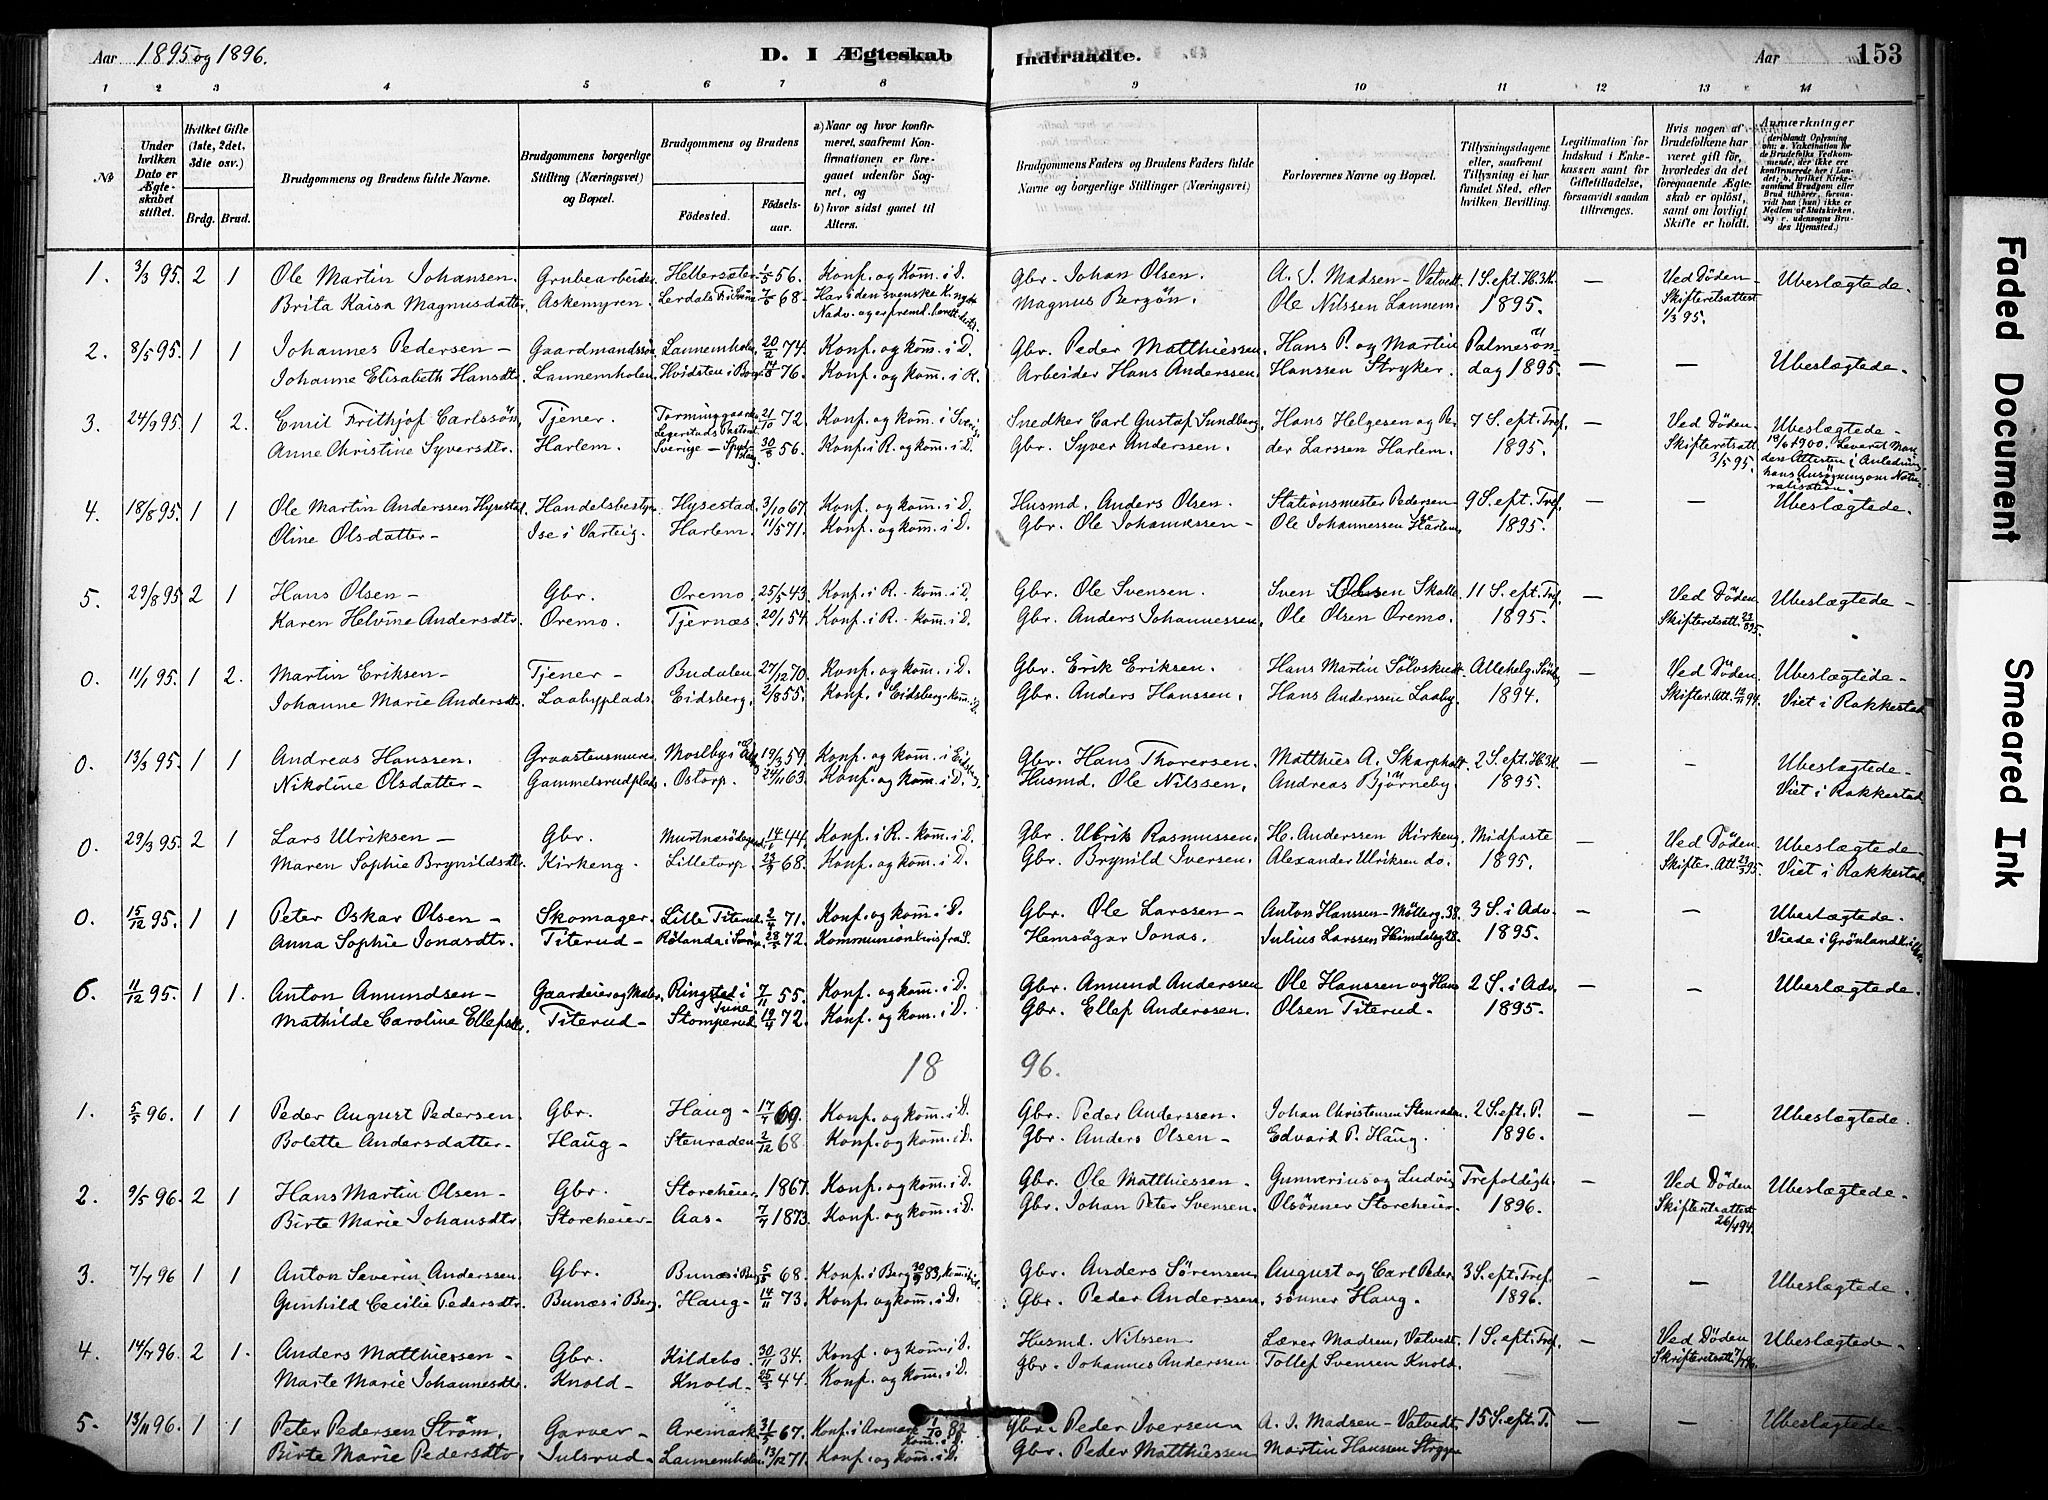 Aar 1895 og 1896.
D. I Ægteskab
Indtraadte.
Aar
153
1 2 3 4 5 6 7 8 9 10 11 12 13 14
No
Under hvilken Dato er Ægteskabet stiftet.
Hvilket Gifte (1ste, 2det, 3die osv.)
Brdg. Brud.
Brudgommens og Brudens fulde Navne.
Brudgommens borgerlige Stilling (Næringsvei) og Bopæl.
Brudgommens og Brudens
Fødested.
Fødselsaar.
a) Naar og hvor konfirmeret, saafremt Konfirmationen er foregaaet udenfor Sognet, og
b) hvor sidst gaaet til Alters.
Brudgommens Faders og Brudens Faders fulde Navne og borgerlige Stillinger (Næringsvei)
Forlovernes Navne og Bopæl.
Tillysningsdagene eller, saafremt Tillysning ei har fundet Sted, efter hvilken Bevilling.
Legitimation for Indskud i Enkekassen samt for Giftetilladelse, forsaavidt saadan tiltrænges.
Hvis nogen af Brudefolkene har været gift før, hvorledes da det foregaaende Ægteskab er opløst, samt om lovligt Skifte er holdt.
Anmærkninger (deriblandt Oplysning om: a. Vakcination for de Brudefolks Vedkommende, der ikke ere konfirmerede her i Landet; b. hvilket Kirkesamfund Brudgom eller Brud tilhører, forsaavidt han (hun) ikke er Medlem af Statskirken, og c. udensogns Brudes Hjemsted.)
1. 3/3 95. 2 1 Ole Martin Johansen. Grubearbeider Hellersæter 1/5 56. Konf. og kom. i D. Gbr. Johan Olsen. A. J. Madsen - Vatvedt 1 S. eft. H.3K. — Ved Døden - Ubeslægtede.
Brita Kaisa Magnusdatter. Askemyren. 68. Har i den svenske Magnus Bergön. Ole Nilssen Lannem. 1895. Skifteretsattest 1/3 95.
2. 8/5 95. 1 1 Johannes Pedersen - Gaardmandssøn Lannemholen. 20/2 74. Konf. og kom. i D. Gbr. Peder Matthiessen. Hans P. og Martin Palmesøn- — — Ubeslægtede.
Johanne Elisabeth Hansdtr. Lannemholen. Hvidsten i Borge 14/8 76. Konf. og kom. i R. Arbeider Hans Anderssen. Hanssen Stryker. dag 1895.
3. 24/9 95. 1 2. Emil Frithjof Carlssön, Tjener. 21/10 72. Konf. og kom. i Sverige Snedker Carl Gustaf Sundberg, Hans Helgesen og Pe- 7 S. eft. Tref. — Ved Døden. Ubeslægtede -
Anne Christine Syversdtr. Harlem. Sverige - 30/8 56. Konf. i R. og kom. i D. Gbr. Syver Anderssen. der Larssen Harlem. 1895. Skifteretsatt. 3/5 95. 19/6 1900. Leveret Manden Attesten i Anledning hans Ansøgning om Naturalisation.
4. 18/8 95. 1 1 Ole Martin Anderssen Hysestad. Handelsbestyr. Hysestad. 3/10 67. Konf. og kom. i D. Husmd. Anders Olsen. Stationsmester Pedersen 9 S. eft. Tref. — — Ubeslægtede.
Oline Olsdatter - Ise i Varteig. Harlem. 11/5 71. Konf. og kom. i D. Gbr. Ole Johannessen - Ole Johannessen Harlem. 1895.
5. 29/8 95. 2 1 Hans Olsen - Gbr. Oremo. 25/5 43. Konf. i R. - kom. i D. Gbr. Ole Svensen. Sven Olsen 11 S. eft. Tref. — Ved Døden. Ubeslægtede -
Karen Helvine Andersdtr. Oremo. Tjernæs. 20/1 54. Konf. i R. - kom. i D. Gbr. Anders Johannessen. Ole Olsen Oremo. 1895. Skifteretsatt. 22/8 95.
0. 11/1 95. 1 2. Martin Eriksen - Tjener - Budalen 27/12 70. Konf. og kom. i D. Gbr. Erik Eriksen. Hans Martin Allehelg. — Ved Døden Ubeslægtede -
Johanne Marie Andersdtr. Laabyplads. Eidsberg. 2/8 55. Konf. i Eidsberg - kom. i D. Gbr. Anders Hanssen. Hans Anderssen Laaby. 1894. Skifter. Att. 12/11 94. Viet i Rakkestad
0. 13/3 95. 1 1 Andreas Hanssen. Graastensmurer 19/3 59. Konf. og kom. i Eidsberg Gbr. Hans Thoresen. Matthies A. 2 S. eft. H.3K. — — Ubeslægtede -
Nikoline Olsdatter - Gammelsrudplads. Ostorp. 63. Konf. og kom. i D. Husmd. Ole Nilssen. Andreas Björneby. 1895. Viet i Rakkestad
0. 29/3 95. 2 1 Lars Ulriksen - Gbr. 44. Konf. i R. - kom. i D. Gbr. Ulrik Rasmussen. H. Anderssen Kirkeng. Midfaste — Ved Døden. Ubeslægtede -
Maren Sophie Brynildsdtr. Kirkeng. Lilletorp. 68. Konf. og kom. i D. Gbr. Brynild Iversen. Alexander Ulriksen do. 1895. Skifter. Att. 23/3 95. Viet i Rakkestad.
0. 15/12 95. 1 1 Peter Oskar Olsen - Skomager. Lille Titerud. 2/4 71. Konf. og kom. i D. Gbr. Ole Larssen - Anton Hanssen - Mötterg. 38. 3 S. i Adv. — — Ubeslægtede.
Anna Sophie Jonasdtr. Titerud - Rölanda i Sverige. 28/5 72. Kommunionbevis fra S. Hemsägar Jonas. Julius Larssen Heimdalsg. 28. 1895. Viede i Grönlandkirke.
6. 11/12 95. 1 1. Anton Amundsen - Gaardeier og Maler. Ringstad i Tune 7/11 55. Konf. og kom. i D. Gbr. Amund Anderssen Ole Hanssen og Hans 2 S. i Adv. — — Ubeslægtede.
Mathilde Caroline Ellefsdtr. Titerud - Stomperud 19/4 72. Konf. og kom. i D. Gbr. Ellef Anderssen. Olsen Titerud - 1895.
18 96.
1. 5/5 96. 1 1 Peder August Pedersen. Gbr. Haug - 17/4 69. Konf. og kom. i D. Gbr. Peder Anderssen. Johan Christensen Stenraden. 2 S. eft. P. — — Ubeslægtede.
Bolette Andersdatter - Haug - Stenraden 2/12 68. Konf. og kom. i D. Gbr. Anders Olsen - Edvard P. Haug. 1896.
2. 9/5 96. 2 1 Hans Martin Olsen - Gbr. Storeheier. 1867. Konf. og kom. i D. Gbr. Ole Matthiessen - Gunnerius og Ludvig Trefoldigh. Ved Døden Ubeslægtede -
Birte Marie Johansdtr. Storeheier - Aas. 7/4 1873. Konf. og kom. i D. Gbr. Johan Peter Svensen. Olsönner Storeheier. 1896. Skifteretsattest 26/4 94.
3. 7/7 96 1 1 Anton Severin Anderssen. Gbr. Bunæs i Berg 5/5 68. Konf. i Berg 30/9 83, kom. i Gbr. Anders Sörensen August og Carl Peder- 3 S. eft. Tref. — — Ubeslægtede.
Gunhild Cecilie Pedersdtr. Bunæs i Berg. Haug - 14/11 73. Konf. og kom. i D. Gbr. Peder Anderssen. sönner Haug. 1896.
4. 14/7 96. 2 1. Anders Matthiessen - Gbr. Kildebo. 30/11 34. Konf. og kom. i D. Husmd. Nilssen. Lærer Madsen, Vatvedt. 1 S. eft. Tref. — Ved Døden Ubeslægtede -
Marte Marie Johannesdtr. Knold - Knold - 25/3 44. Konf. og kom. i D. Gbr. Johannes Anderssen Tollef Svensen Knold.
5. 13/11 96. 1 1 Peter Pedersen Ström. Garver - Aremark 31/5 67. Konf. i Aremark 1/10 82 kom. i D. Gbr. Peder Iversen A. J. Madsen - Vatvedt. 15 S. eft. T. — — Ubeslægtede -
Birte Marie Pedersdtr. Julsrud - Lannemholen. 13/12 71. Konf. og kom. i D. Gbr. Peder Matthiessen Martin Hanssen
Faded Document
Smeared Ink